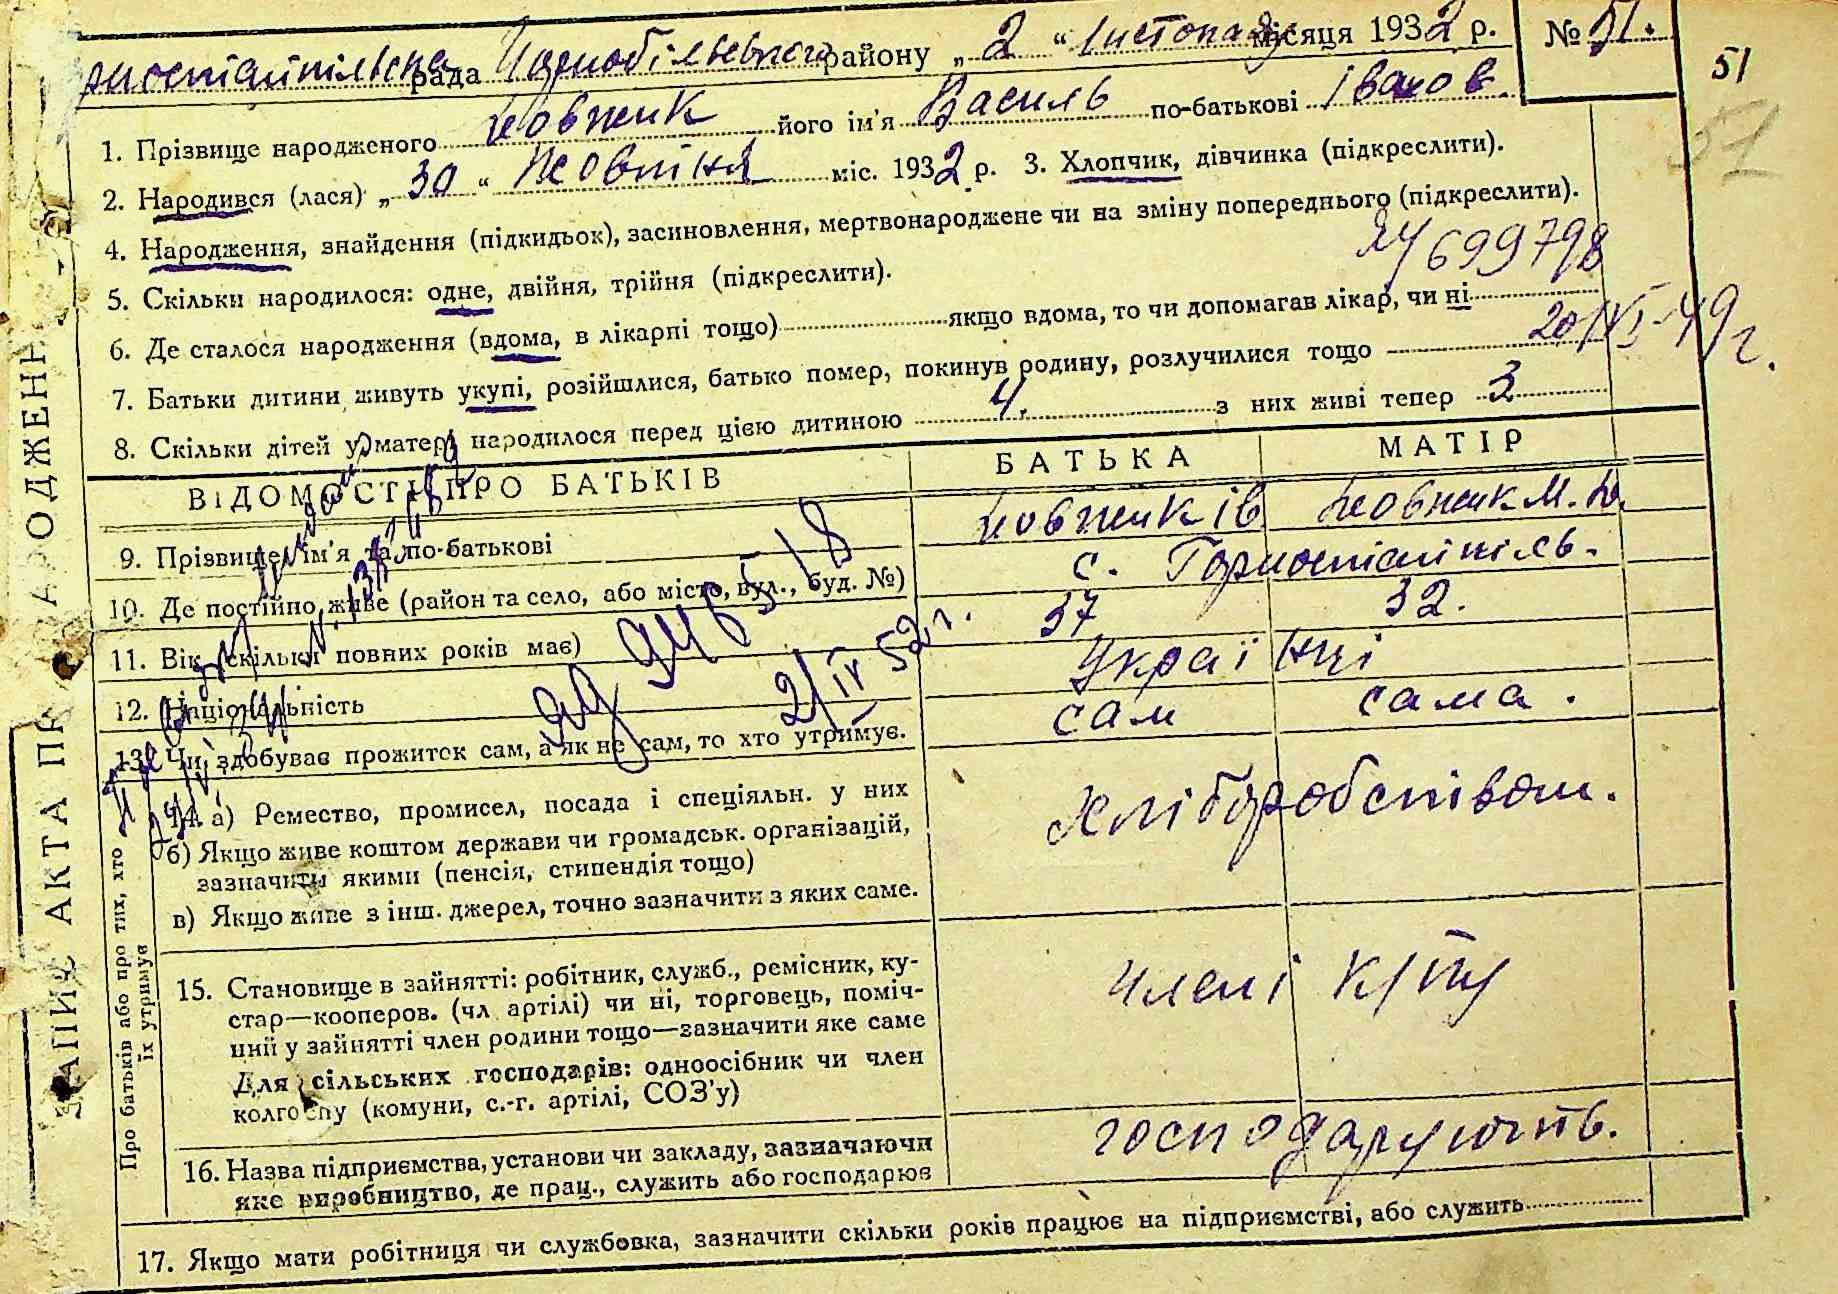 рностайпільська рада Чорнобільського району „ 2 “ Листопада місяця 1932 р. № 51.
51
51
1. Прізвище народженого Довжик його ім'я Василь по-батькові Іванов.
2. Народився (лася) „ 30 “ Жовтня міс. 1932 р. 3. Хлопчик, дівчинка (підкреслити).
4. Народження, знайдення (підкидьок), засиновлення, мертвонароджене чи на зміну попереднього (підкреслити).
5. Скільки народилося: одне, двійня, трійня (підкреслити).
699798
6. Де сталося народження (вдома, в лікарні тощо) якщо вдома, то чи допомагав лікар, чи ні
7. Батьки дитини живуть укупі, розійшлися, батько помер, покинув родину, розлучилися тощо
20/VI-49 г.
8. Скільки дітей у матері народилося перед цією дитиною 4. з них живі тепер 3
ВІДОМОСТІ ПРО БАТЬКІВ БАТЬКА МАТІР
9. Прізвище, ім'я та по-батькові Довжик ів Довжик М. Д.
10. Де постійно живе (район та село, або місто, вул., буд. №) с. Горностайпіль.
11. Вік (скільки повних років має) 37 32.
12. Національність Українці
13. Чи здобуває прожиток сам, а як не сам, то хто утримує. сам сама.
2/IV 52 г.
14. а) Ремество, промисел, посада і спеціяльн. у них Хліборобством.
б) Якщо живе коштом держави чи громадськ. організацій,
зазначити якими (пенсія, стипендія тощо)
в) Якщо живе з інш. джерел, точно зазначити з яких саме.
15. Становище в зайнятті: робітник, служб., ремісник, ку-
стар—кооперов. (чл артілі) чи ні, торговець, поміч-
ний у зайнятті член родини тощо—зазначити яке саме
Для сільських господарів: одноосібник чи член
колгоспу (комуни, с.-г. артілі, СОЗ'у)
члені
16. Назва підприємства, установи чи закладу, зазначаючи
яке виробництво, де прац., служить або господарює
господарують.
17. Якщо мати робітниця чи службовка, зазначити скільки років працює на підприємстві, або служить
Про батьків або про тих, хто
їх утримує
ЗАПИС АКТА ПРО НАРОДЖЕНН